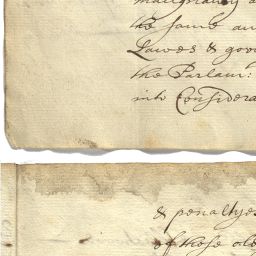 malignancy a
the same an
Lawes & goo
the Parlam:
into Considera
& penaltyes
of those ol